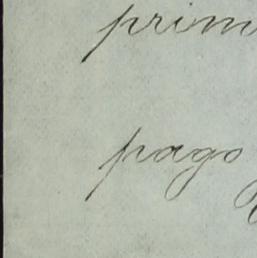 prim
pago